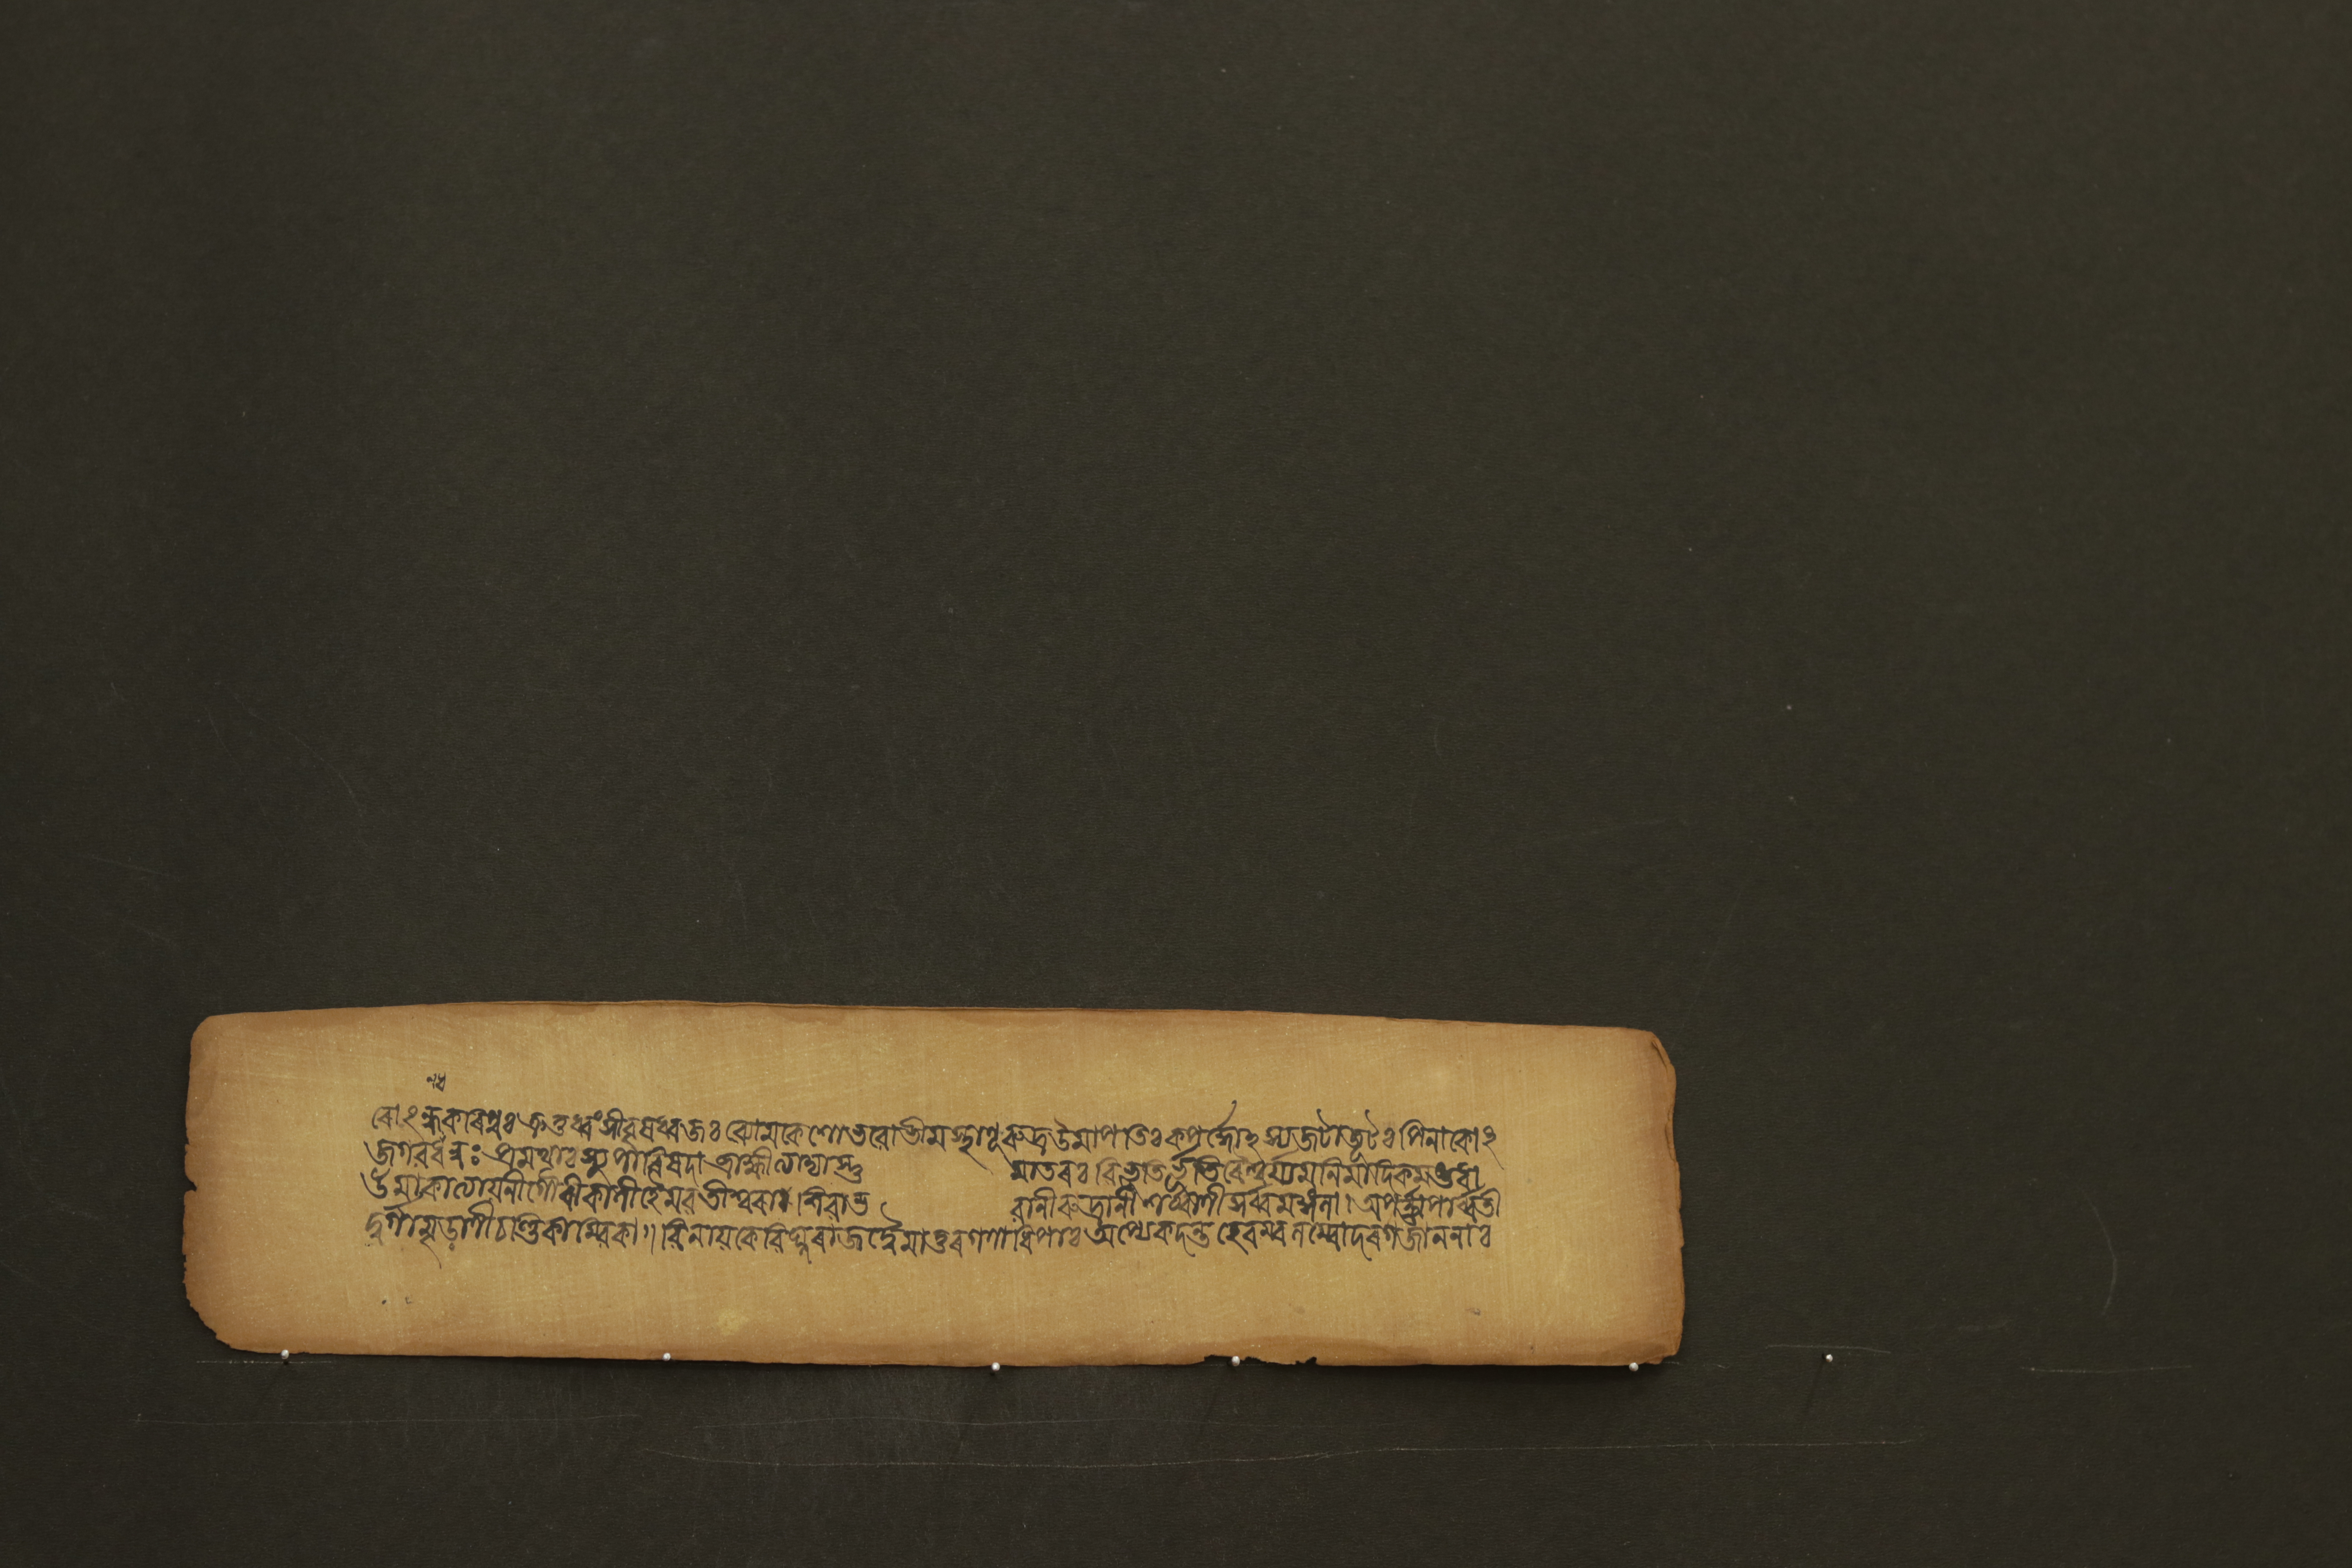 ন্ধ
ৰোঽন্ধকৰিপুঃ ক্রতুধ্বংসীবৃষধ্বজঃ ব্যোমকেশোভবোভীমস্থাণূৰুদ্রউমাপতিঃ কপর্দ্দোঽস্যজটাজূটঃ পিনাকোঽ
জগবর্ধনুঃ প্রমথাঃ স্যুপাৰিষদা ব্রাহ্মীত্যাদ্যাস্তু মাতৰঃ বিভূতির্ভূতিৰৈশ্বর্য্যমনিমাদিকমষ্টধা
উমাকাত্যায়নীগৌৰীকালীহৈমবতীশ্বৰা। শিবাভ বানীৰুদ্রানীশর্ব্বাণীসর্ব্বমঙ্গলা। অপর্ণ্ণাপার্ব্বতী
দুর্গামৃড়াণীচণ্ডিকাম্বিকা॥ বিনায়কোবিঘ্নৰাজদ্বৈমাতুৰগণাধিপাঃ অপ্যেকদন্তহেৰম্বলম্বোদৰগজাননাঃ